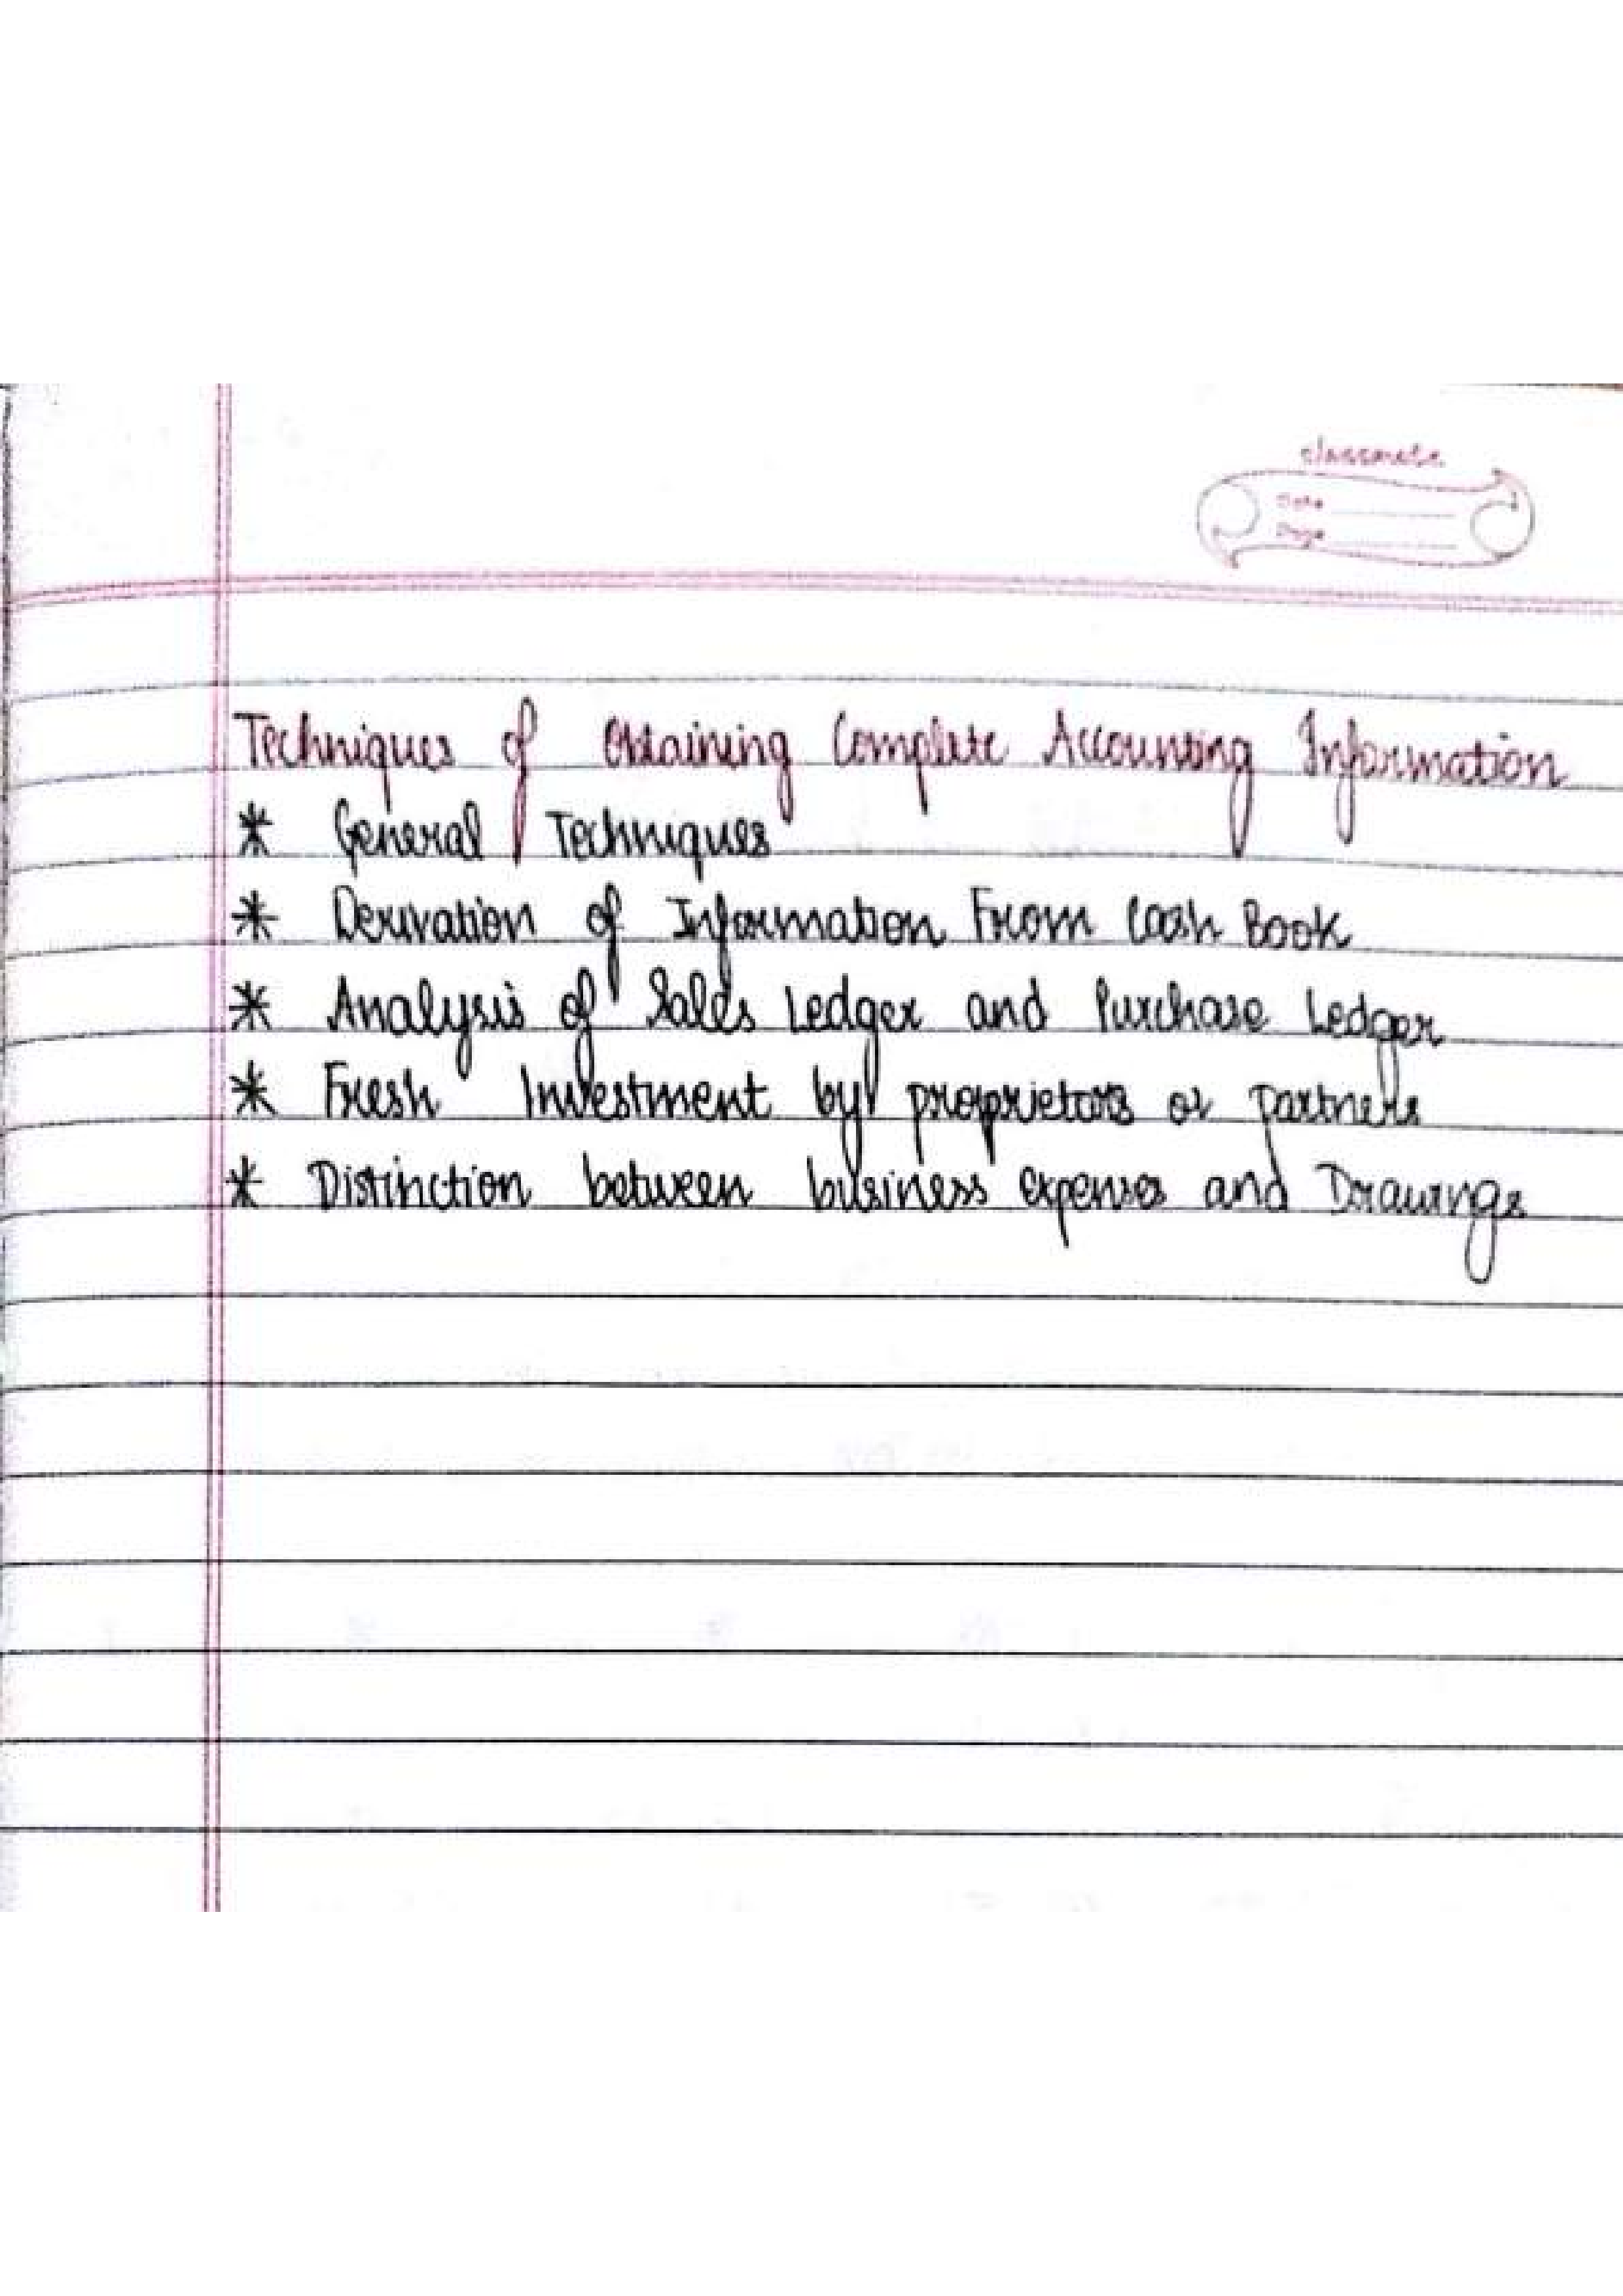 classmate
Date
Page
Techniques of Obtaining Complete Accounting Information
* General Techniques
* Derivation of Information From Cash Book
* Analysis of Sales Ledger and Purchase Ledger
* Fresh Investment by proprietors or partners
* Distinction between business expenses and Drawings